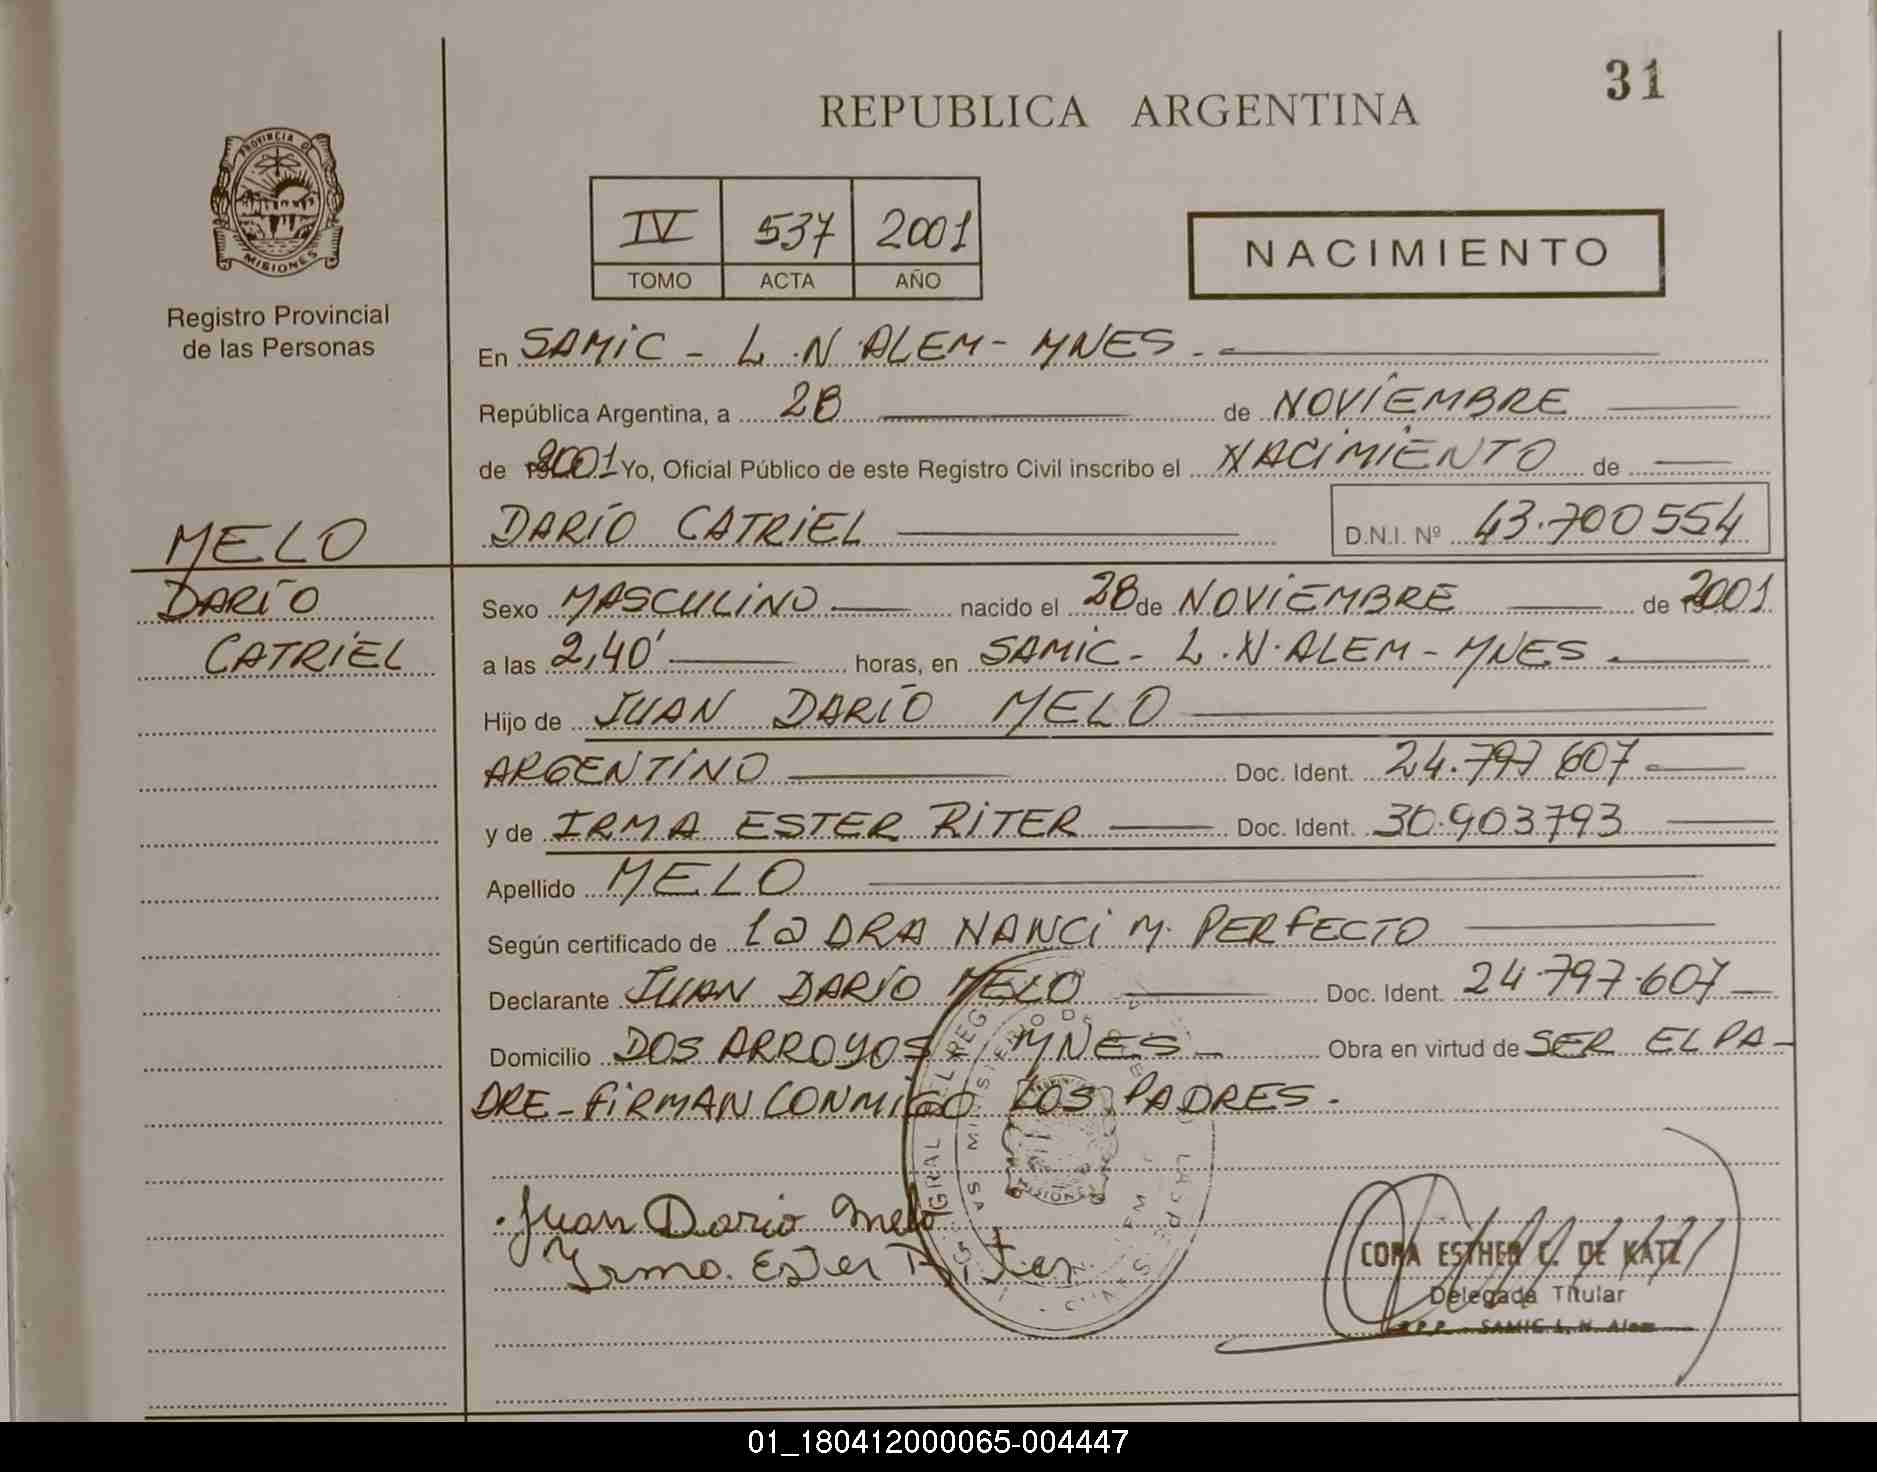 31
REPUBLICA ARGENTINA
PROVINCIA D
MISIONES
Registro Provincial
de las Personas
IV 537 2001
TOMO ACTA AÑO
NACIMIENTO
En SAMIC - L.N.ALEM - MNES -
República Argentina, a 28 de NOVIEMBRE
de 2001 Yo, Oficial Público de este Registro Civil inscribo el NACIMIENTO de
MELO
DARÍO CATRIEL D.N.I. Nº 43.700554
DARÍO
CATRIEL
Sexo MASCULINO nacido el 28 de NOVIEMBRE de 2001
a las 2,40' horas, en SAMIC - L.N.ALEM - MNES -
Hijo de JUAN DARÍO MELO
ARGENTINO Doc. Ident. 24.797607
y de IRMA ESTER RITER Doc. Ident. 30.903793
Apellido MELO
Según certificado de la DRA NANCI M. PERFECTO
Declarante JUAN DARÍO MELO Doc. Ident. 24.797.607
Domicilio DOS ARROYOS MNES - Obra en virtud de SER EL PA-
DRE - FIRMAN CONMIGO LOS PADRES.
Juan Dario Melo
Irma Ester Riter
MISIONES
CORA ESTHER C. DE KATZ
Delegada Titular
R.P.P. SAMIC L. N. Alem
01_180412000065-004447